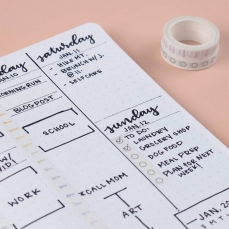 saturday
JAN. 11
- HIKE MT.
- BRUNCH W/ J.
@ 11
- SELF CARE
JAN. 10
MORNING RUN
BLOG POST
SCHOOL
WORK
sunday
JAN. 12
TO DO:
LAUNDRY
GROCERY SHOP
DOG FOOD
MEAL PREP
PLAN FOR NEXT
WEEK!
CALL MOM
ART
JAN. 20
MT